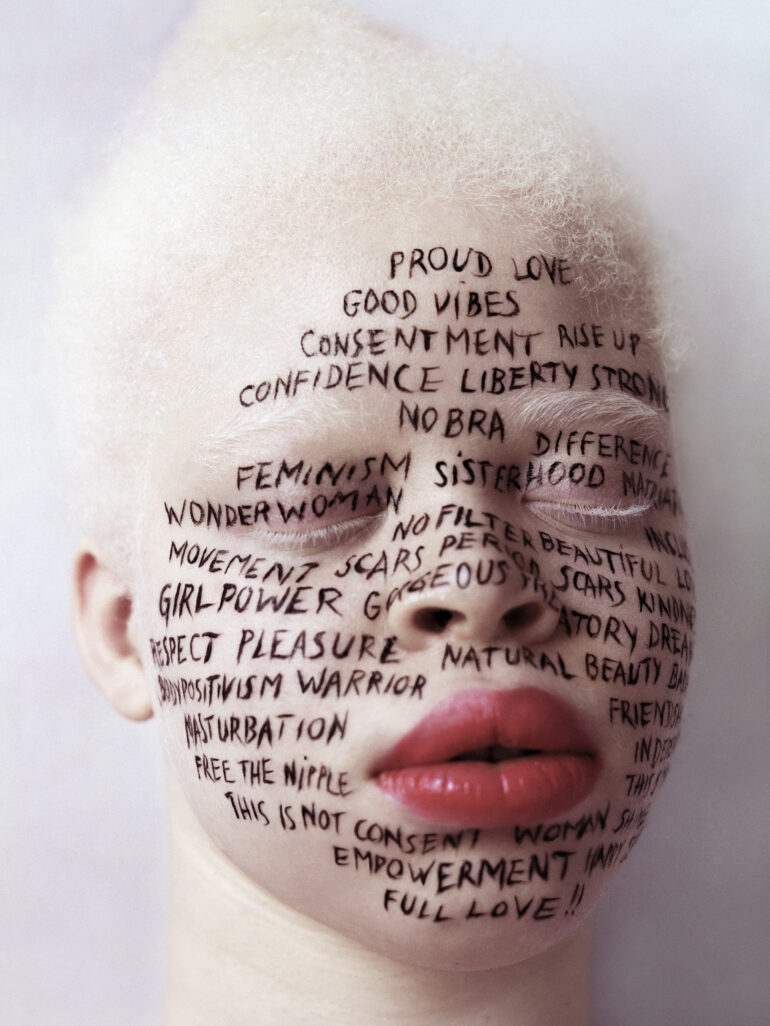 PROUD LOVE
GOOD VIBES
CONSENTMENT RISE UP
CONFIDENCE LIBERTY STRONG
NO BRA
DIFFERENCE
FEMINISM SISTERHOOD
WONDERWOMAN
NO FILTER BEAUTIFUL
MOVEMENT SCARS PERIOD SCARS
GIRLPOWER GORGEOUS
RESPECT PLEASURE
NATURAL BEAUTY
BODYPOSITIVISM WARRIOR
MASTURBATION
FREE THE NIPPLE
THIS IS NOT CONSENT WOMAN
EMPOWERMENT
FULL LOVE!!